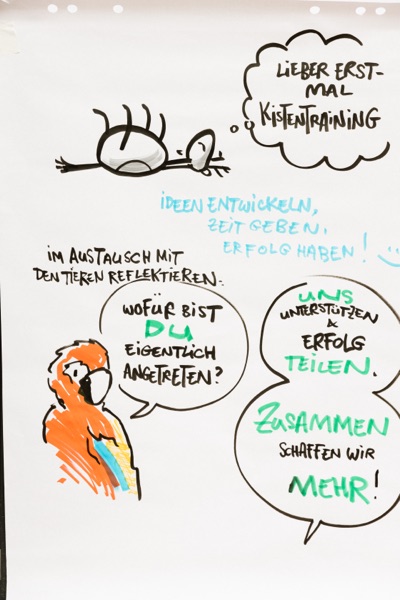 LIEBER ERST-
MAL
KISTENTRAINING
IDEEN ENTWICKELN,
ZEIT GEBEN,
ERFOLG HABEN!
IM AUSTAUSCH MIT
DEN TIEREN REFLEKTIEREN:
WOFÜR BIST
DU
EIGENTLICH
ANGETRETEN?
UNS
UNTERSTÜTZEN
&
ERFOLG
TEILEN.
ZUSAMMEN
SCHAFFEN WIR
MEHR!